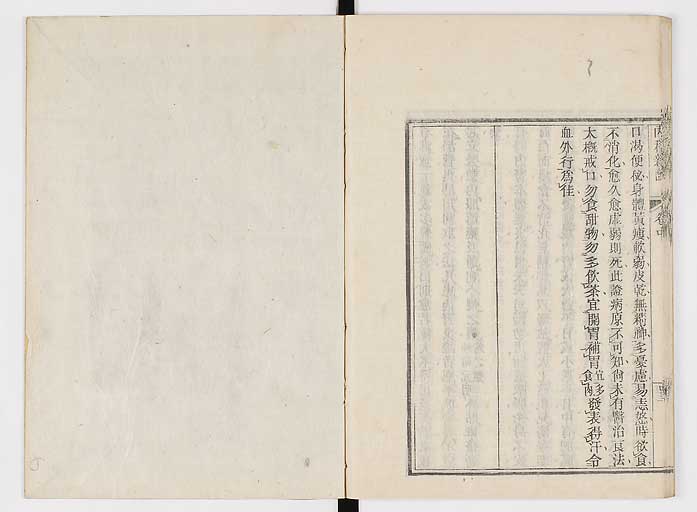 口渴便秘身體黃瘦軟弱皮乾無精神多憂慮易忘怒時欲食
不消化愈久愈虛弱則死此證病原不可知尙未有醫治良法
大概戒口勿食甜物勿多飲茶宜開胃補胃宜多食肉發表得汗令
血外行爲佳